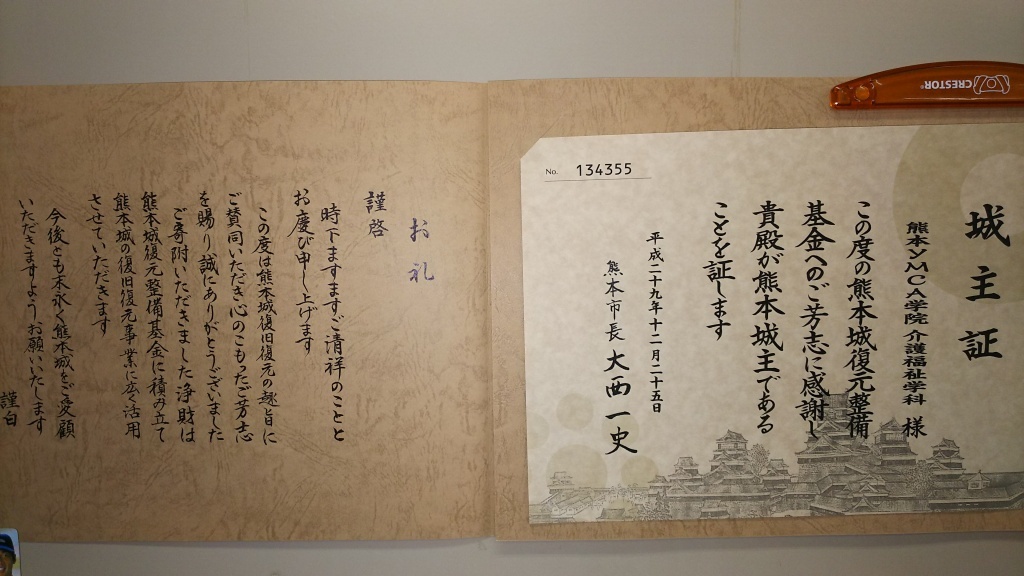 No. 134355
城主証
熊本YMCA学院 介護福祉学科 様
この度の熊本城復元整備
基金へのご芳志に感謝し
貴殿が熊本城主である
ことを証します
平成二十九年十二月二十五日
熊本市長 大西一史
CRESTOR®
お礼
謹啓
時下ますますご清祥のこと
お慶び申し上げます
この度は熊本城復旧復元の趣旨に
ご賛同いただき心のこもったご芳志
を賜り誠にありがとうございました
ご寄附いただきました浄財は
熊本城復元整備基金に積み立て
熊本城の復旧復元事業に広く活用
させていただきます
今後とも末永く熊本城をご愛顧
いただきますようお願いいたします
謹白